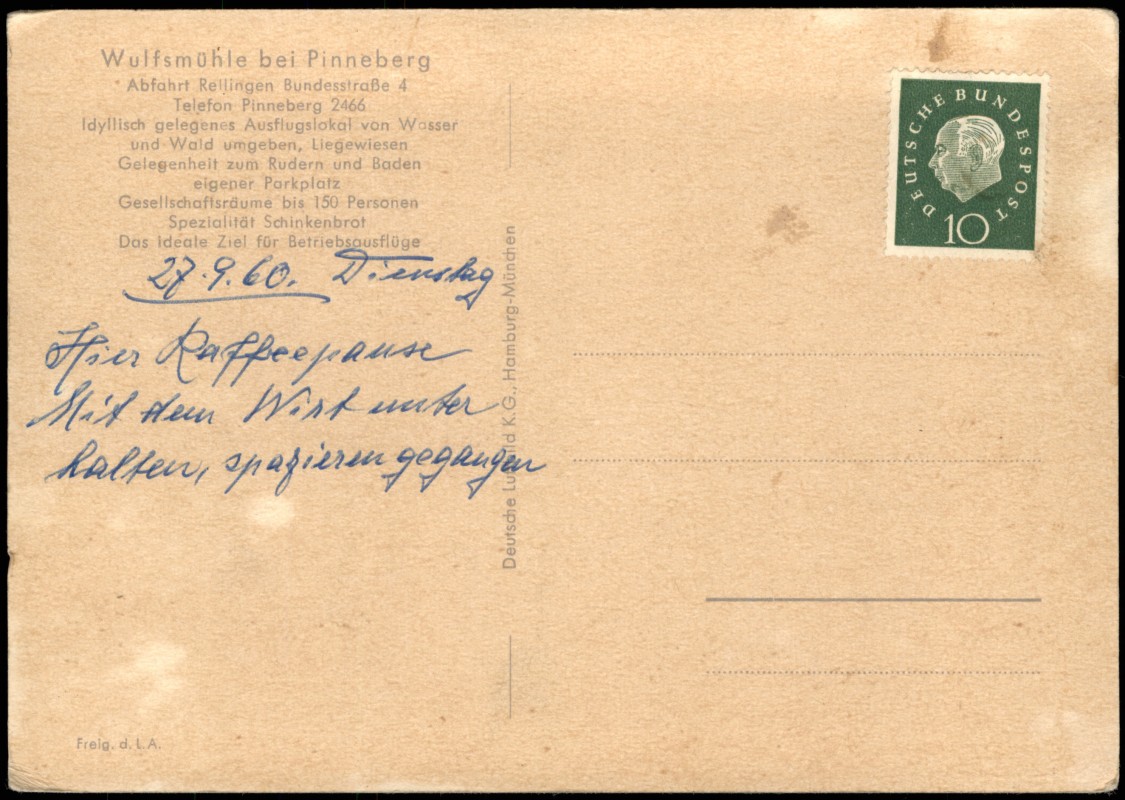 Wulfsmühle bei Pinneberg
Abfahrt Rellingen Bundesstraße 4
Telefon Pinneberg 2466
Idyllisch gelegenes Ausflugslokal von Wasser
und Wald umgeben, Liegewiesen
Gelegenheit zum Rudern und Baden
eigener Parkplatz
Gesellschaftsräume bis 150 Personen
Spezialität Schinkenbrot
Das Ideale Ziel für Betriebsausflüge
27.9.60. Dienstag
Hier Kaffeepause
Mit dem Wirt unter
halten, spazieren gegangen
Freig. d. L.A.
Deutsche Luftbild K.G., Hamburg-München
DEUTSCHE BUNDESPOST
10